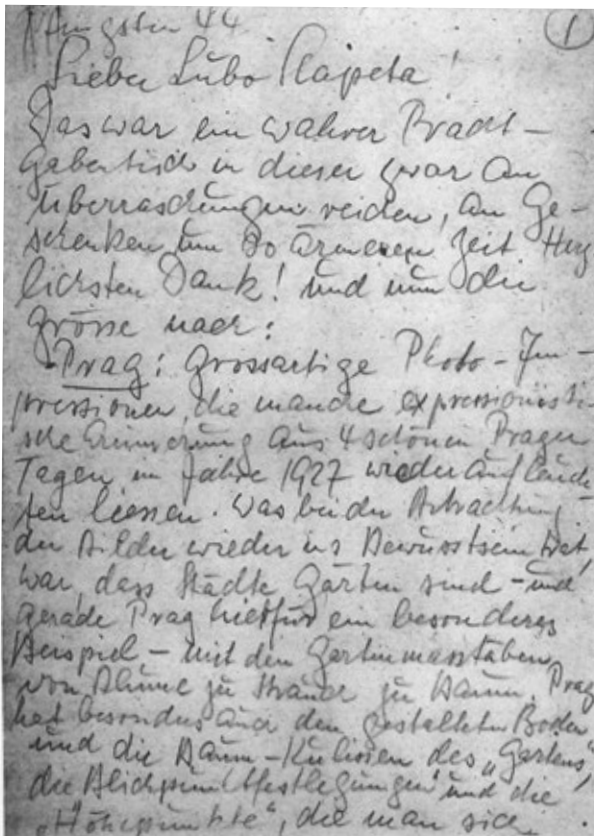 Pfingsten 44 1
Lieber Lubo Klapeta!
Das war ein wahrer Pracht-
Gabentisch in dieser zwar an
Überraschungen reichen, an Ge-
schenken um so ärmeren Zeit Herz
lichsten Dank! und nun die
Grösse nach:
Prag: Grossartige Photo-Im-
pressionen, die manche expressionisti-
sche Erinnerung aus 4 schönen Prager
Tagen im Jahre 1927 wieder aufleuch
ten liessen. Was bei der Betrachtung
der Bilder wieder ins Bewusstsein trat,
war, dass Städte Gärten sind - und
gerade Prag hierfür ein besonderes
Beispiel, - mit den Gartenmasstäben
von Blume zu Strauch zu Baum. Prag
hat besonders auch den gestalteten Boden
und die Baum-Kulissen des „Gartens",
die Blickpunktfestlegungen und die
„Höhepunkte", die man sich